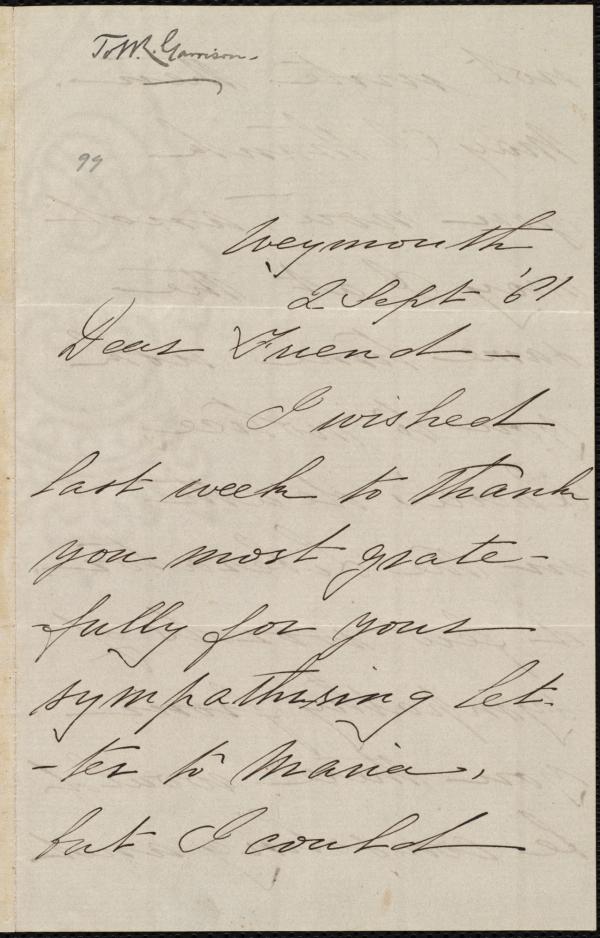 To W. L. Garrison.
99
Weymouth
2 Sept '61
Dear Friend -
I wished
last week to thank
you most grate-
-fully for your
sympathising let-
-ter to Maria,
but I could